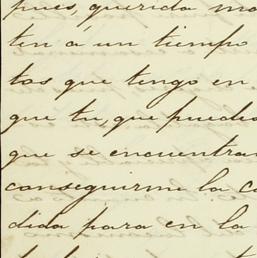 pues, querida ma
ten á un tiempo
tos que tengo en
que tu, que puedes
que se encuentran
conseguirme la co
dida para en la